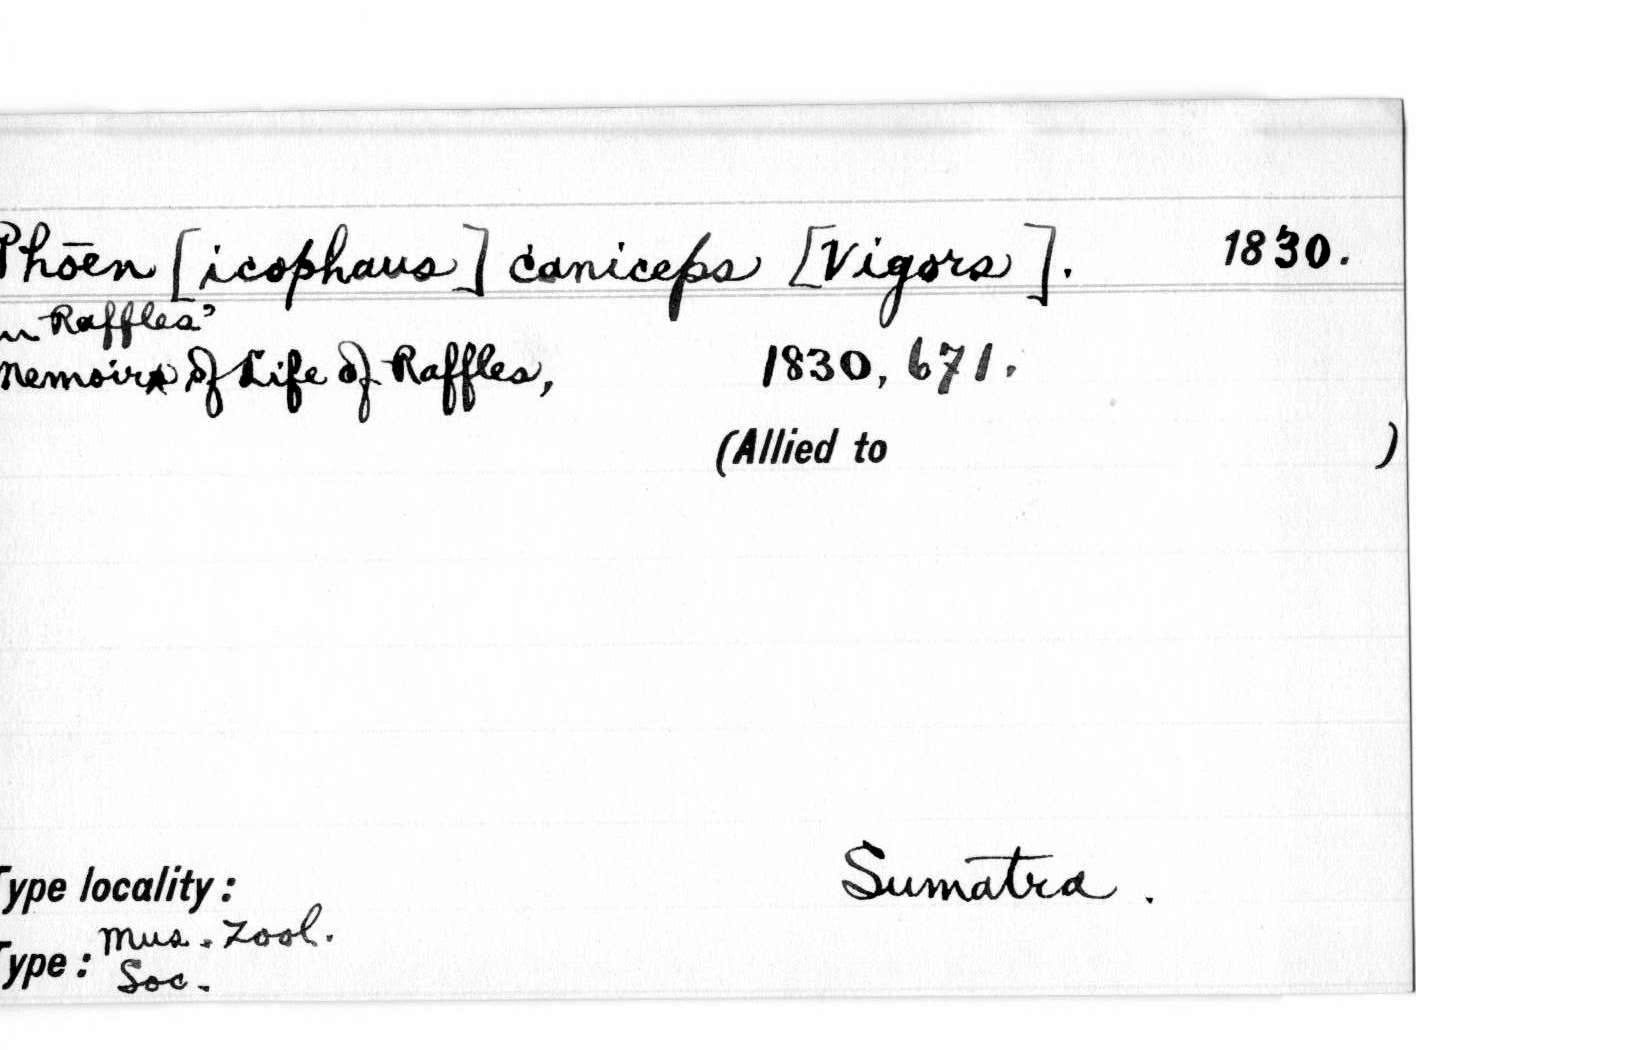 Phōen [icophaus] caniceps [Vigors]. 1830.
in Raffles'
Memoirs of Life of Raffles, 1830, 671.
(Allied to )
Type locality: Sumatra.
Mus. Zool.
Type: Soc.